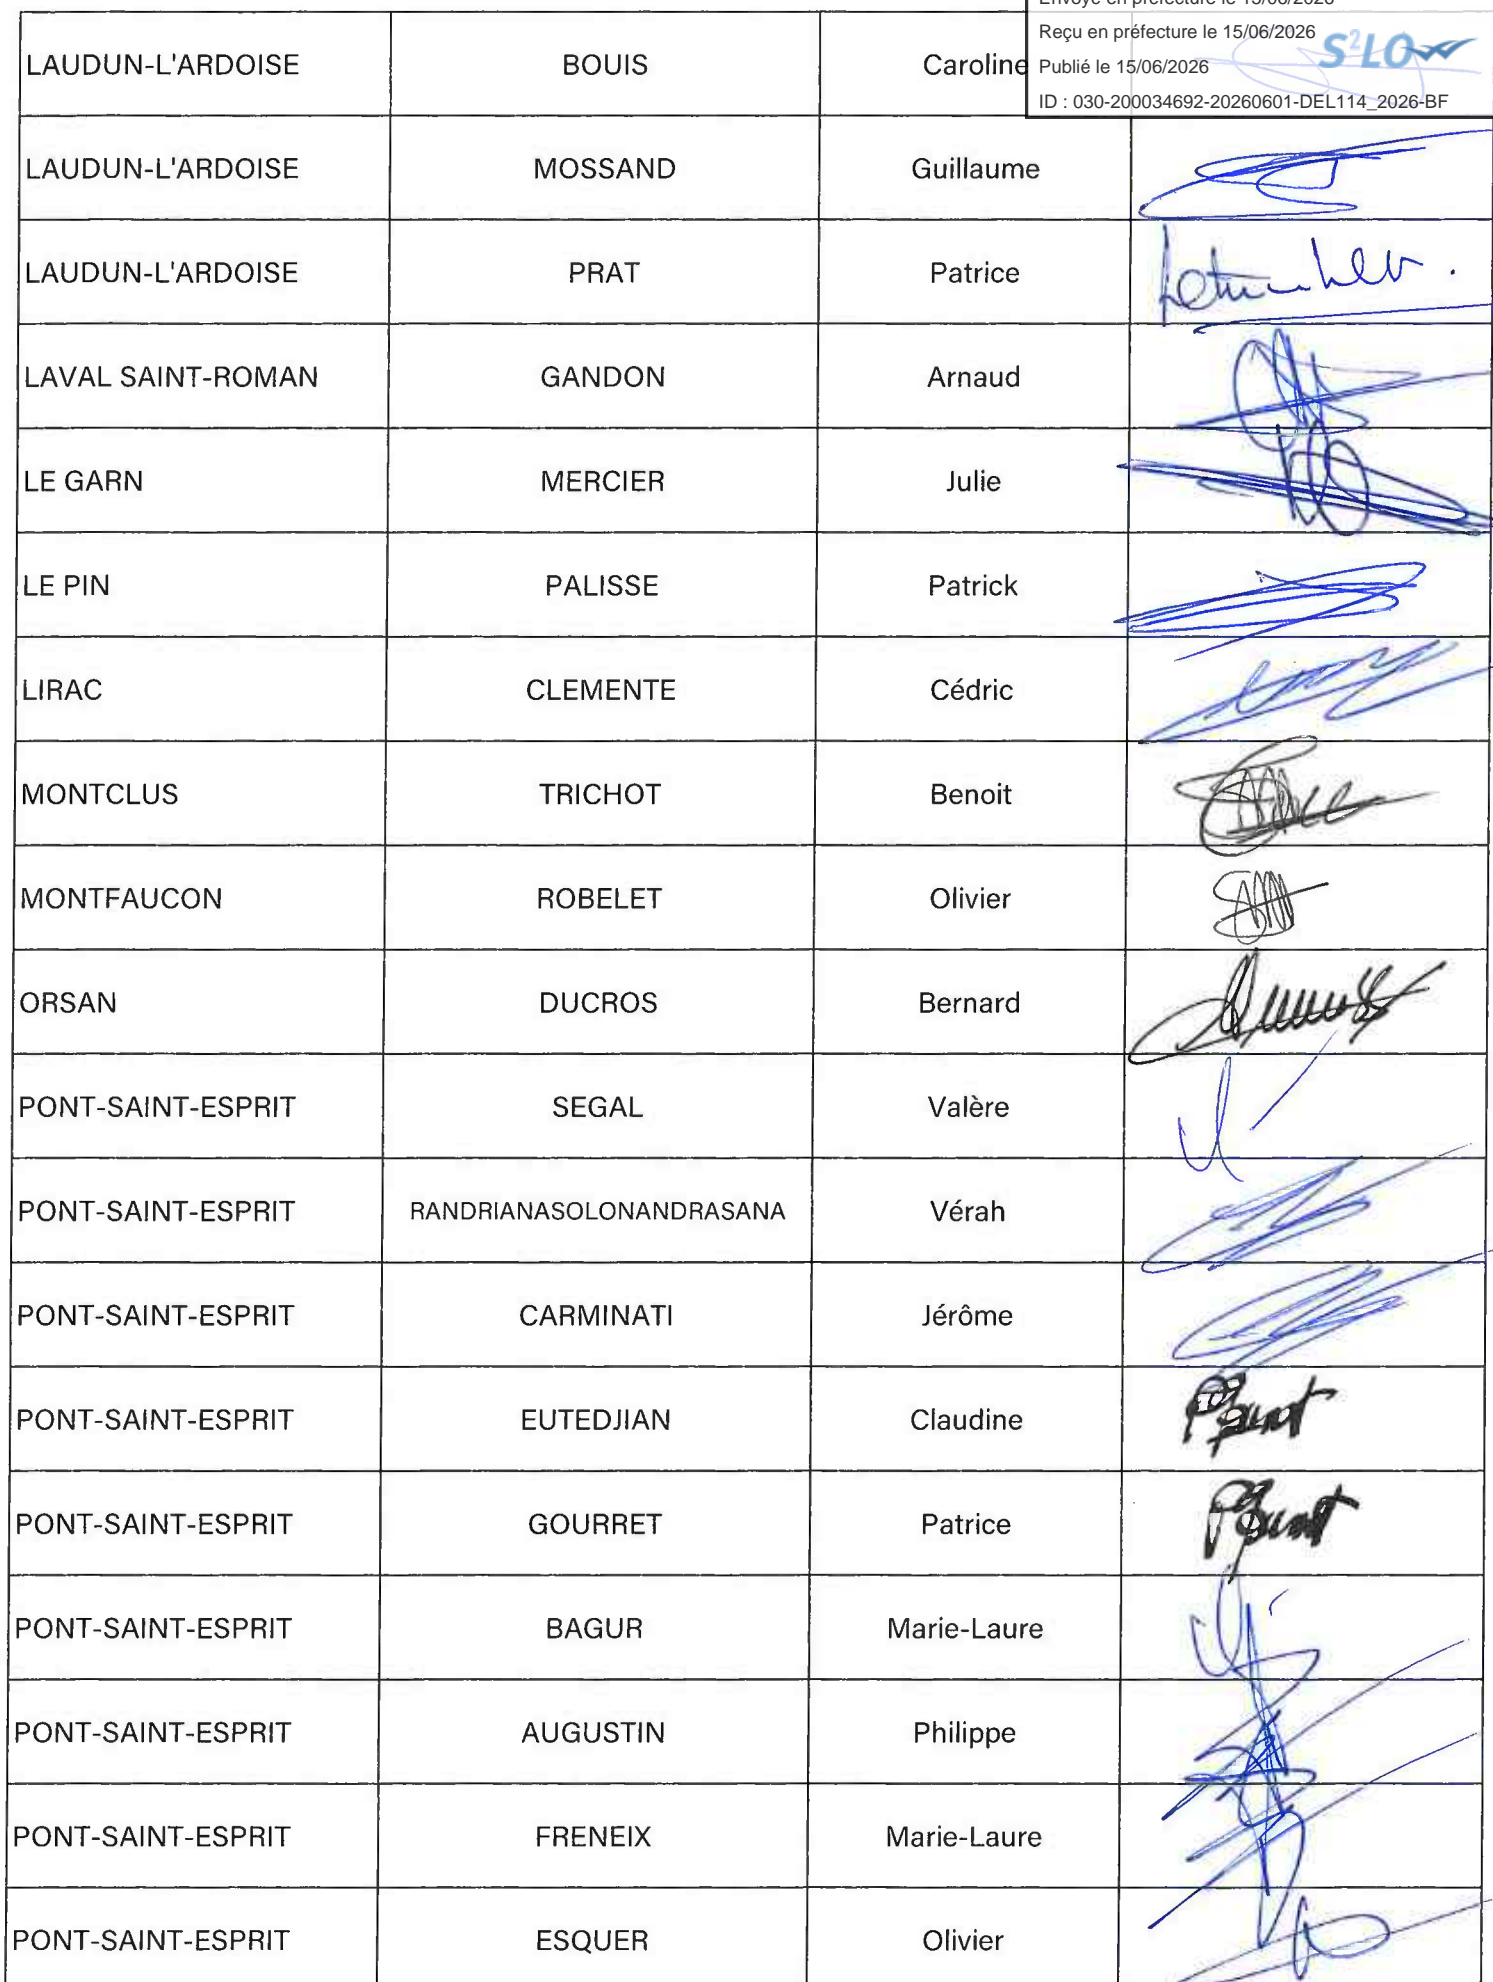 Envoyé en préfecture le 15/06/2026
Reçu en préfecture le 15/06/2026
S²LO
Publié le 15/06/2026
ID : 030-200034692-20260601-DEL114_2026-BF
LAUDUN-L'ARDOISE BOUIS Caroline
LAUDUN-L'ARDOISE MOSSAND Guillaume
LAUDUN-L'ARDOISE PRAT Patrice
LAVAL SAINT-ROMAN GANDON Arnaud
LE GARN MERCIER Julie
LE PIN PALISSE Patrick
LIRAC CLEMENTE Cédric
MONTCLUS TRICHOT Benoit
MONTFAUCON ROBELET Olivier
ORSAN DUCROS Bernard
PONT-SAINT-ESPRIT SEGAL Valère
PONT-SAINT-ESPRIT RANDRIANASOLONANDRASANA Vérah
PONT-SAINT-ESPRIT CARMINATI Jérôme
PONT-SAINT-ESPRIT EUTEDJIAN Claudine
PONT-SAINT-ESPRIT GOURRET Patrice
PONT-SAINT-ESPRIT BAGUR Marie-Laure
PONT-SAINT-ESPRIT AUGUSTIN Philippe
PONT-SAINT-ESPRIT FRENEIX Marie-Laure
PONT-SAINT-ESPRIT ESQUER Olivier